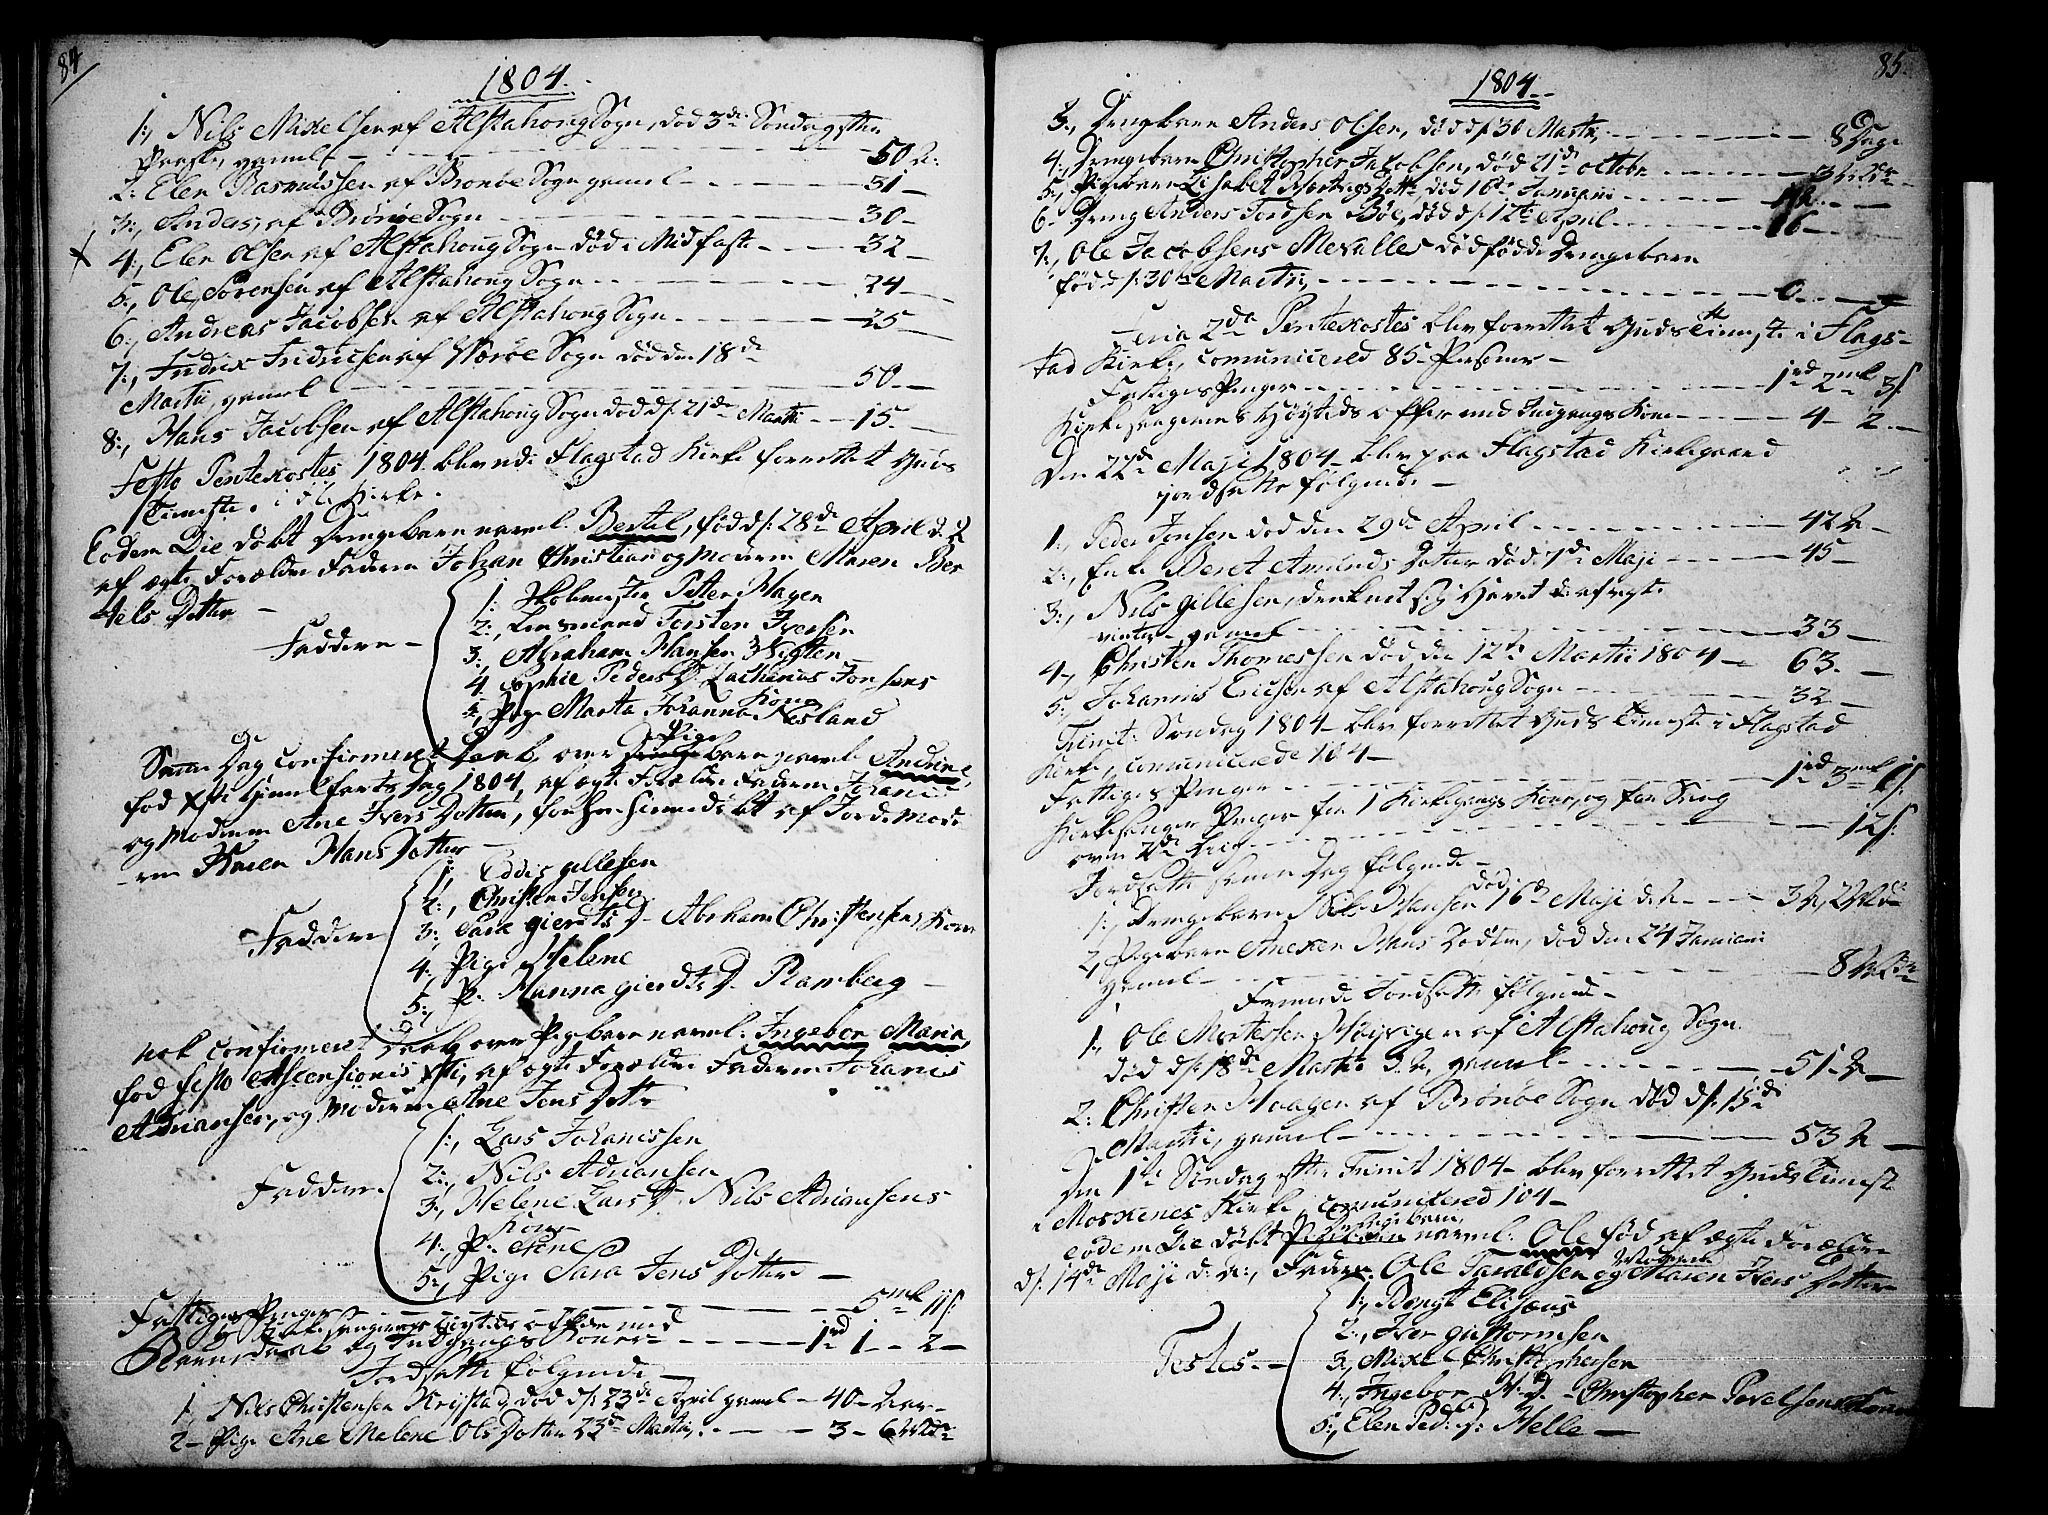 84
1804.
1:, Nils Mikelsen af Alstahoug Sogn, død 3de Søndag efter
Paaske, gamel - 50 A:
2: Elen Rasmussen af Brønøe Sogn gamel - 31 -
3:, Anders, af Brønøe Sogn - 30 -
4:, Elen Olsen af Alstahoug Sogn død i Midfaste - 32
5:, Ole Sørensen af Alstahoug Sogn - 24 -
6:, Andreas Jacobsen af Alstahoug Sogn - 25 -
7:, Fridrix Fridricsen af Værøe Sogn død den 18de
Martii, gamel - 50 -
8:, Hans Jacobsen af Alstahoug Sogn død d: 21de Martii - 15 -
Festo Pentekostes 1804 blev udi Flagstad Kirke forrettet Guds
Tieniste i Kirke.
Eodem Die døbt Drengebarn navnl: Bertel, fød d: 28de April d: A
af ægte Forældre Faderen Johan Christian og Moderen Maren Ber
tels Dotter -
Faddere -
1:, Skolmester Petter Hagen
2:, Lensmand Torsten Iversen
3:, Abraham Hansen Wigten
4. Sophie Peders D. Zacharias Jonsens
Kone
5:, Pige Marta Johanna Nesland
Pige
Samme Dag confirmeret Daab, over Drengebarn navnl: Andrine,
fød Xsti Himmelfarts Dag 1804, af ægte Forældre Faderen Johanis
og Moderen Ane Ivers Dotter, forhen hiemedøbt af Jordemode
-ren Karen Hans Dotter -
Faddere
1, Eddis Gillesen
2:, Christen Jensen
3:, Sara Gierdts D. Abrham Christensens Kone
4:, Pige Helene
5:, P: Hanna Gierdts D. Ramberg -
Nok confirmeret Daab over Pigebarn navnl: Ingebor Maria,
fød Festo Ascensionis Xsti, af ægte Forældre Faderen Johanis
Adriansen, og Moderen Ane Jens Dotter
Faddere
1:, Lars Johanissen
2:, Nils Adriansen
3:, Helene Lars D. Nils Adriansens
Kone
4:, P: Ane
5:, Pige Sara Jens Dotter -
Fattiges Penger - 5mk 11s:
Kirkesangerens Høytids offer med
Barnedaab og Indgangs Koner - 1rd 1 - 2 -
Jordsatte følgende -
1 Nils Christensen Krystad, død d: 23de April gamel - 40 - Aar -
2 - Pige Ane Malene Ols Dotter 23de Martii - 3 - 6 Uger
85.
1804.
3:, Drengebarn Anders Olsen, død d: 30 Martii - 8 Dage
4:, Drengebarn Christopher Jacobsen, død 21de octobr -
5:, Pigebarn Lisabet Dotter død 16de Januarii - 12 -
6 - Dreng Anders Tordsen Bøe, død d: 12te April - 16 -
7:, Ole Jacobsens Mevalles dødfødde Drengebarn
fød d: 30te Martii, - 0 -
Feria 2da Pentekostes blev forrettet Guds Tienste i Flags-
tad Kirke, comunicered 85 Personer -
Fattiges Penger - 1rd 2mk 3s
Kirkesangerens Høytids offer med Indgangs Kone - 4 - 2 -
Den 22de Maji 1804 - blev paa Flagstad Kirkegaard
jordsatte følgende -
1:, Peder Jonsen død den 29de April - 42 A -
2:, Enke Beret Amunds Dotter død 7de Maji - 45 -
3:, Nils Gillesen, druknet paa Havet
vinter, gamel - 33 -
4:, Christen Thomessen død den 12te Martii 1804 - 63 -
5:, Johannis Ericsen af Alstahoug Sogn - 32 -
Trinit: Søndag 1804 - blev forrettet Guds Tienste i Flagstad
Kirke, comunicerede 104 -
Fattiges Penger - 1rd 3mk 1s:
Kirkesanger Penger for 1 Kirkegangs Kone, og for Sang
over 2de Lig - 12s:
Jordsatte samme Dag følgende -
1:, Drengebarn Nils Hansen død 16de Maji d: A - 3 A,
2, Pigebarn Aneken Hans Dotter, død den 24 Januarii
gamel - 8
Fremmede Jordsatte følgende -
1:, Ole Mortensen af Alstahoug Sogn
død d: 18de Martii d: A, gamel - 51 A -
2: Christen Haagen af Brønøe Sogn død d: 15de
Martii, gamel - 53 A -
Den 1te Søndag efter Trinit 1804 - blev forrettet Guds Tienst
i Moskenes Kirke, comunicered 104 -
Drengebarn,
eodem Die døbt Pigebarn navnl: Ole fød af ægte Forældre
d: 14de Maji d: A:, Faderen Ole Taraldsen og Moderen Maren Ivers Dotter
Testes. -
1:, Bengt Elisæus
2:, Iver Guttormsen
3:, Mikel Christophersen
4:, Ingebor H: D. - Christopher Povelsens Kone
5:, Elen Ped: D: Helle -